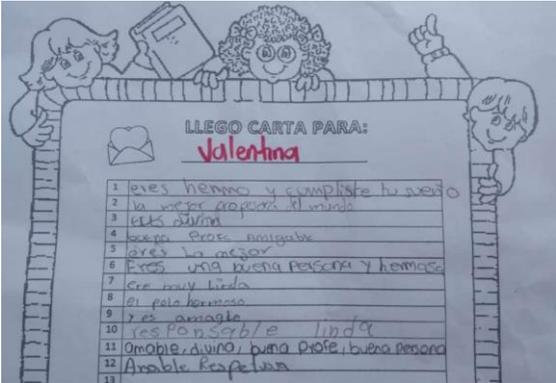 LLEGO CARTA PARA:
Valentina
1 eres hermo y cumpliste tu sueño
2 la mejor profesora del mundo
3 eres divina
4 buena Profe Amigable
5 eres la mejor
6 Eres una buena Persona y hermosa
7 Ere muy linda
8 el pelo hermoso
9 y es amagle
10 responsable linda
11 amable, divina, buena profe, buena persona
12 Amable
13